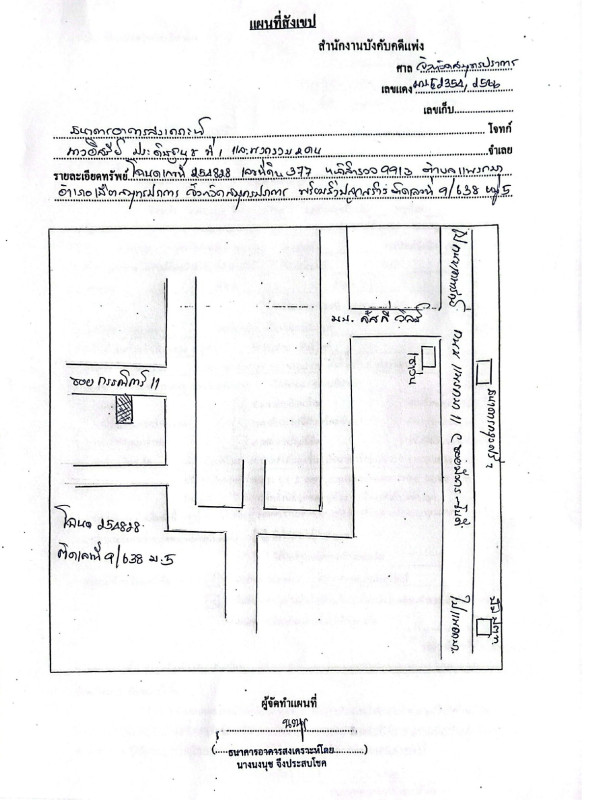 แผนที่สังเขป
สำนักงานบังคับคดีแพ่ง
ศาล จังหวัดสมุทรปราการ
เลขแดง
เลขเก็บ
ธนาคารอาคารสงเคราะห์ โจทก์
ที่ 1 และพวกรวม 2 คน จำเลย
รายละเอียดทรัพย์ โฉนดเลขที่ 254828 เลขที่ดิน 377 หน้าสำรวจ 9913 ตำบล แพรกษา
อำเภอเมืองสมุทรปราการ จังหวัดสมุทรปราการ พร้อมสิ่งปลูกสร้าง ติดเลขที่ 9/638 หมู่ 5
ม.บ.
เซเว่น
ซอย กรรณิการ์ 11
ถนน แพรกษา 11
ธนาคารกรุงศรีฯ
ปั๊ม ปตท.
ไปแพรกษา
โฉนด 254828
ติดเลขที่ 9/638 ม.5
ผู้จัดทำแผนที่
(ธนาคารอาคารสงเคราะห์โดย)
นางนงนุช จึงประสบโชค